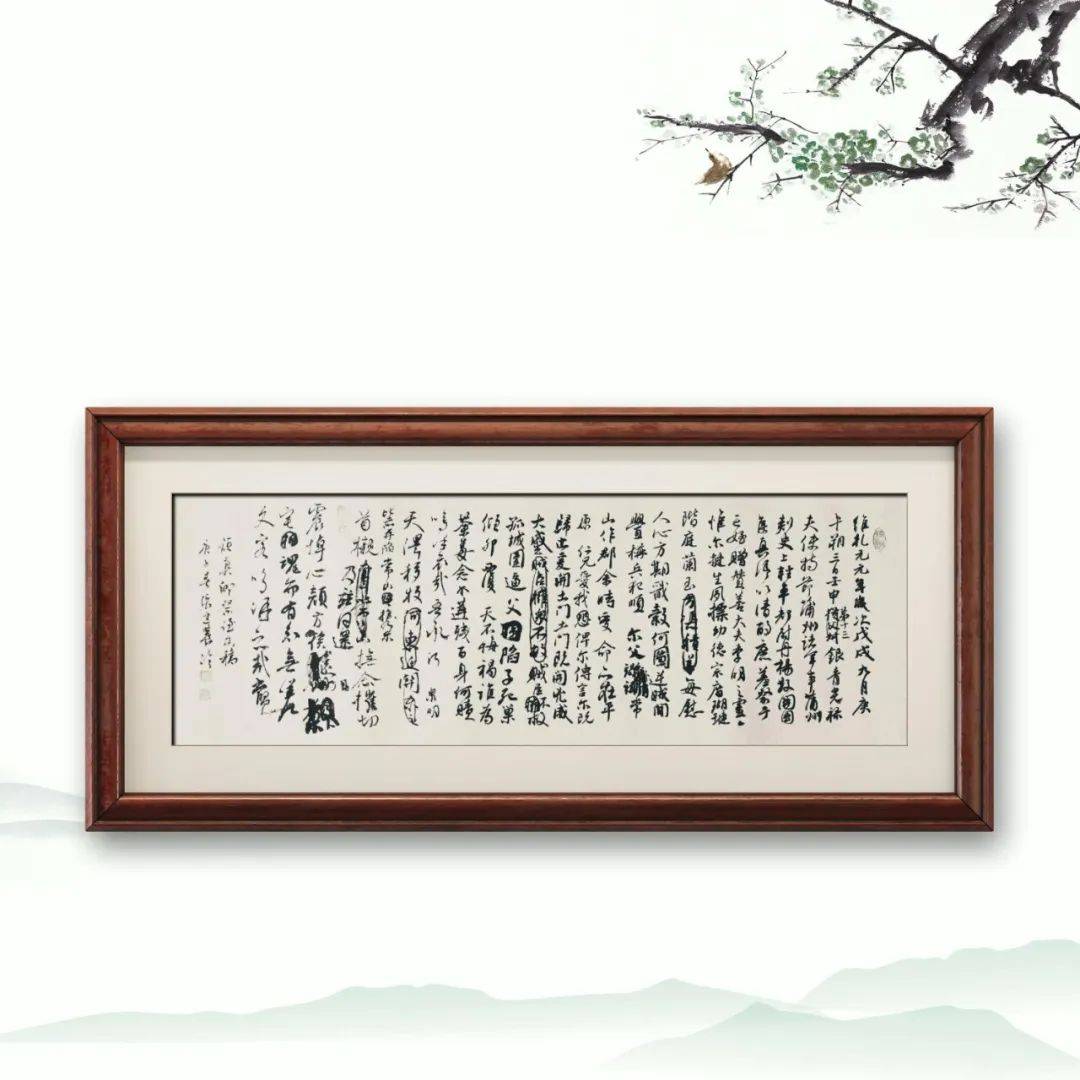 維乾元元年歲次戊戌九月庚
午朔三日壬申第十三叔銀青光祿
夫使持節蒲州諸軍事蒲州
刺史上輕車都尉丹楊縣開國
侯真卿以清酌庶羞祭于
亡姪贈贊善大夫季明之靈
惟爾挺生夙標幼德宗廟瑚璉
階庭蘭玉每慰
人心方期戩穀何圖逆賊閒
釁稱兵犯順爾父竭誠常
山作郡余時受命亦在平
原仁兄愛我俾爾傳言爾既
歸止爰開土門土門既開兇威
大蹙賊臣不救
孤城圍逼父陷子死巢
傾卵覆天不悔禍誰為
荼毒念爾遘殘百身何贖
嗚呼哀哉吾承泉明
天澤移牧河東近
再陷常山攜爾
首櫬及茲同還撫念摧切
震悼心顏方俟
宅魂而有知無嗟
久客嗚呼哀哉尚饗
顏真卿祭侄文稿